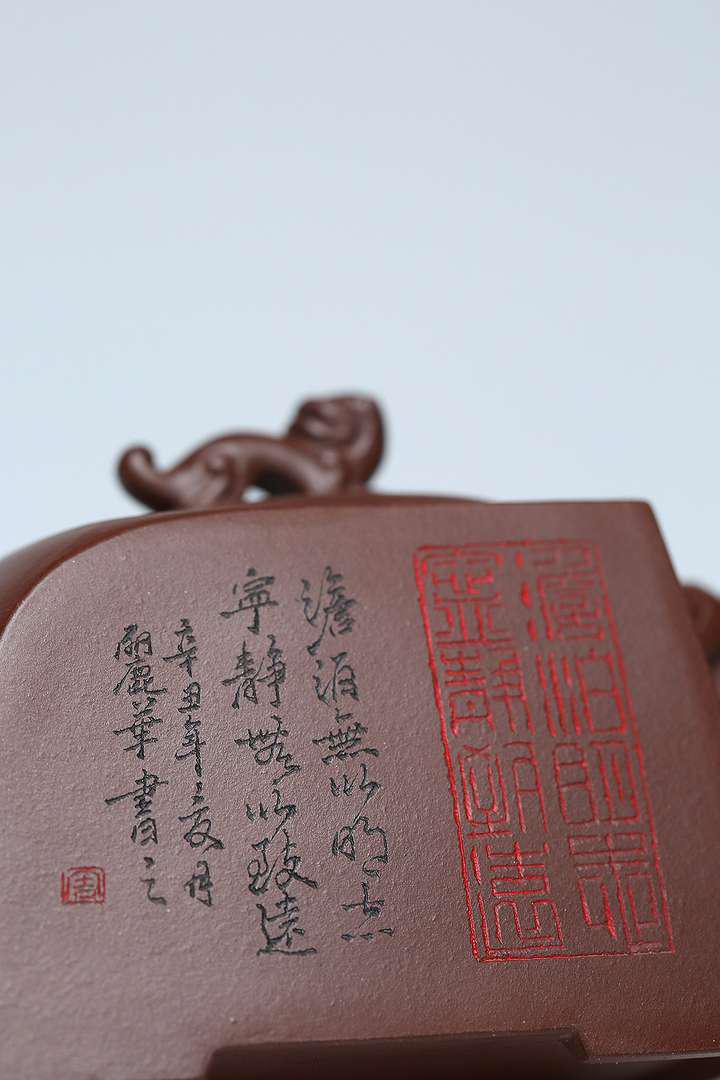 澹泊明志
寧靜致遠
澹泊無以明志
寧靜無以致遠
辛丑年亥月
麗華書之
周